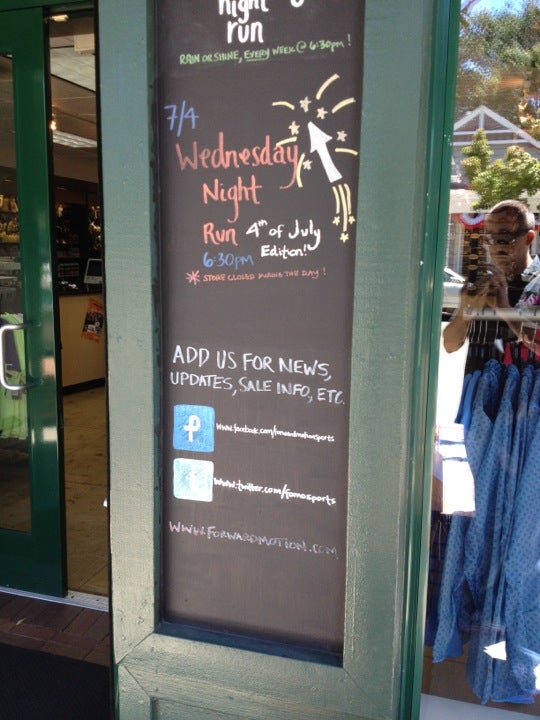 night
run
RAIN OR SHINE, EVERY WEEK @ 6:30pm!
7/4
Wednesday
Night
Run 4th of July
Edition!
6:30pm
* STORE CLOSED DURING THE DAY!
ADD US FOR NEWS,
UPDATES, SALE INFO, ETC.
f www.facebook.com/forwardmotionsports
t www.twitter.com/fomosports
WWW.FORWARDMOTION.COM